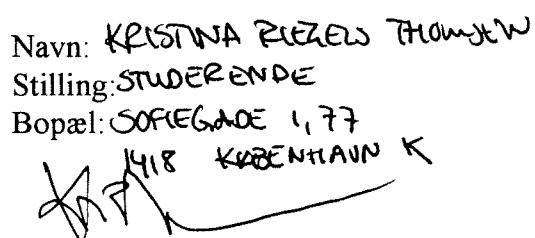 Navn: KRISTINA RIEZELS THOMSEN
Stilling: STUDERENDE
Bopæl: SOFIEGADE 1, 77
1418 KØBENHAVN K